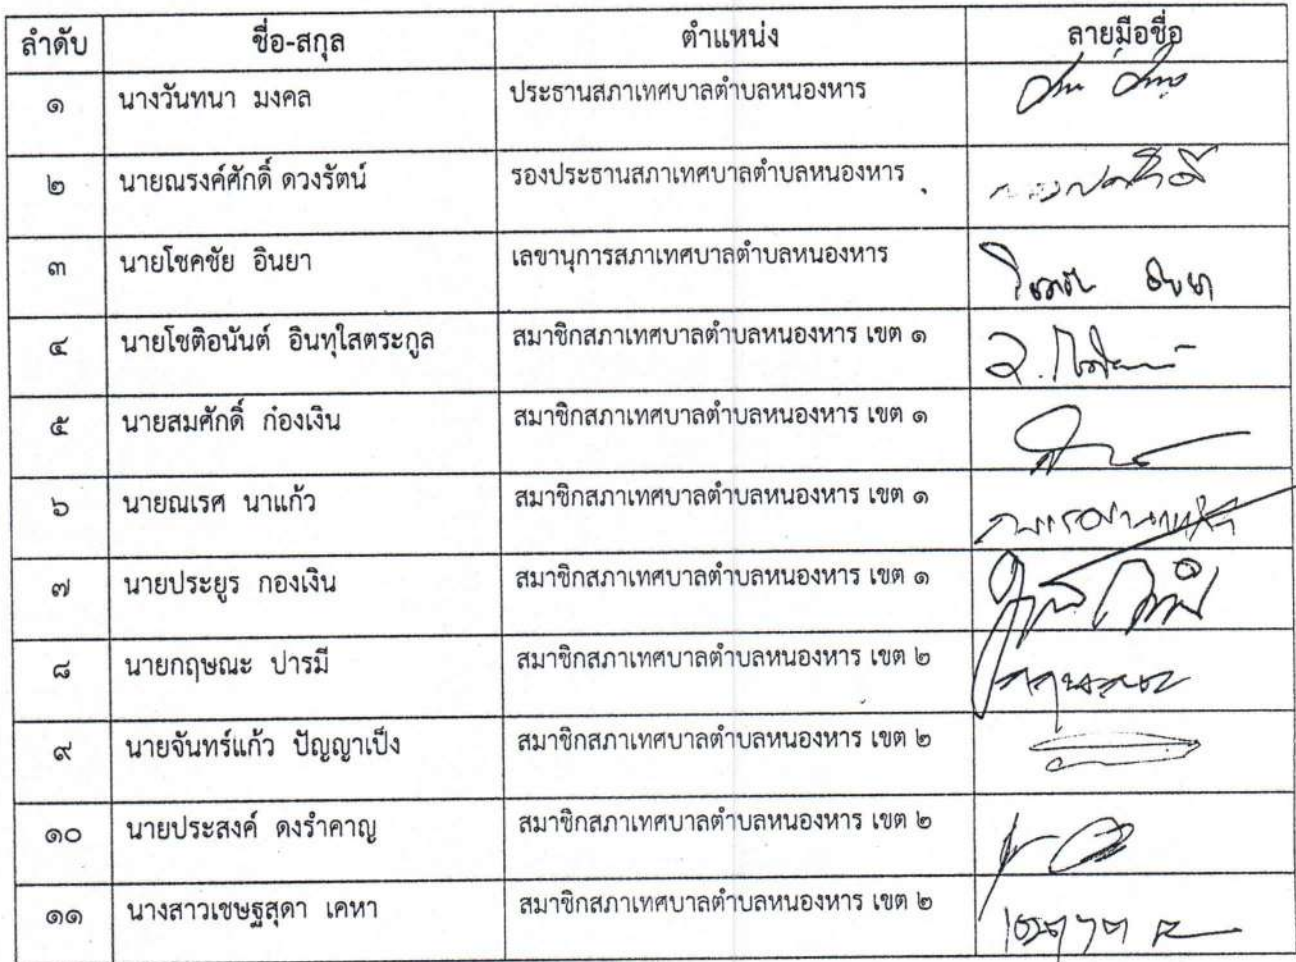 ลำดับ ชื่อ-สกุล ตำแหน่ง ลายมือชื่อ
๑ นางวันทนา มงคล ประธานสภาเทศบาลตำบลหนองหาร
๒ นายณรงค์ศักดิ์ ดวงรัตน์ รองประธานสภาเทศบาลตำบลหนองหาร
๓ นายโชคชัย อินยา เลขานุการสภาเทศบาลตำบลหนองหาร
๔ นายโชติอนันต์ อินทุใสตระกูล สมาชิกสภาเทศบาลตำบลหนองหาร เขต ๑
๕ นายสมศักดิ์ ก๋องเงิน สมาชิกสภาเทศบาลตำบลหนองหาร เขต ๑
๖ นายณเรศ นาแก้ว สมาชิกสภาเทศบาลตำบลหนองหาร เขต ๑
๗ นายประยูร กองเงิน สมาชิกสภาเทศบาลตำบลหนองหาร เขต ๑
๘ นายกฤษณะ ปารมี สมาชิกสภาเทศบาลตำบลหนองหาร เขต ๒
๙ นายจันทร์แก้ว ปัญญาเป็ง สมาชิกสภาเทศบาลตำบลหนองหาร เขต ๒
๑๐ นายประสงค์ ดงรำคาญ สมาชิกสภาเทศบาลตำบลหนองหาร เขต ๒
๑๑ นางสาวเชษฐสุดา เคหา สมาชิกสภาเทศบาลตำบลหนองหาร เขต ๒